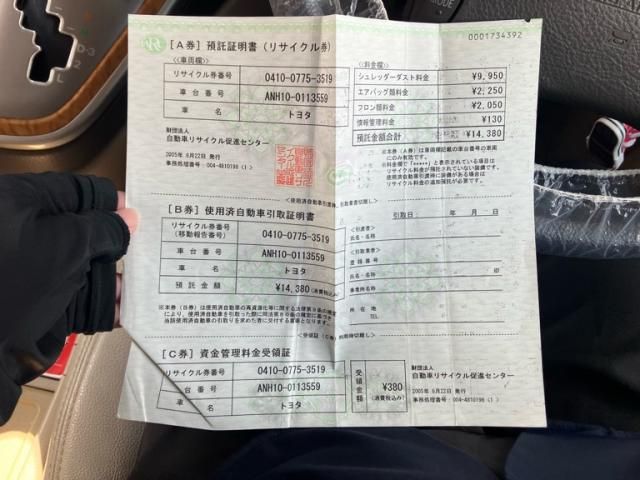 0001734392
[A券] 預託証明書(リサイクル券)
<<車両欄>>
リサイクル券番号 0410-0775-3519
車台番号 ANH10-0113559
車名 トヨタ
財団法人
自動車リサイクル促進センター
2005年 9月22日 発行
事務処理番号:004-4810198(1)
<<料金欄>>
シュレッダーダスト料金 ¥9,950
エアバッグ類料金 ¥2,250
フロン類料金 ¥2,050
情報管理料金 ¥130
預託金額合計 ¥14,380
※本券(A券)は車両欄記載の車台番号の車両
にのみ有効です。
[B券] 使用済自動車引取証明書
引取日: 年 月 日
リサイクル券番号
(移動報告番号) 0410-0775-3519
車台番号 ANH10-0113559
車名 トヨタ
預託金額 ¥14,380(消費税込み)
<引渡者>
氏名・名称
<引取業者>
登録番号
氏名・名称 印
事業所名称
所在地
TEL
[C券] 資金管理料金受領証
リサイクル券番号 0410-0775-3519
車台番号 ANH10-0113559
車名 トヨタ
受領金額 ¥380
(消費税込み)
財団法人
自動車リサイクル促進センター
2005年 9月22日 発行
事務処理番号:004-4810198(1)